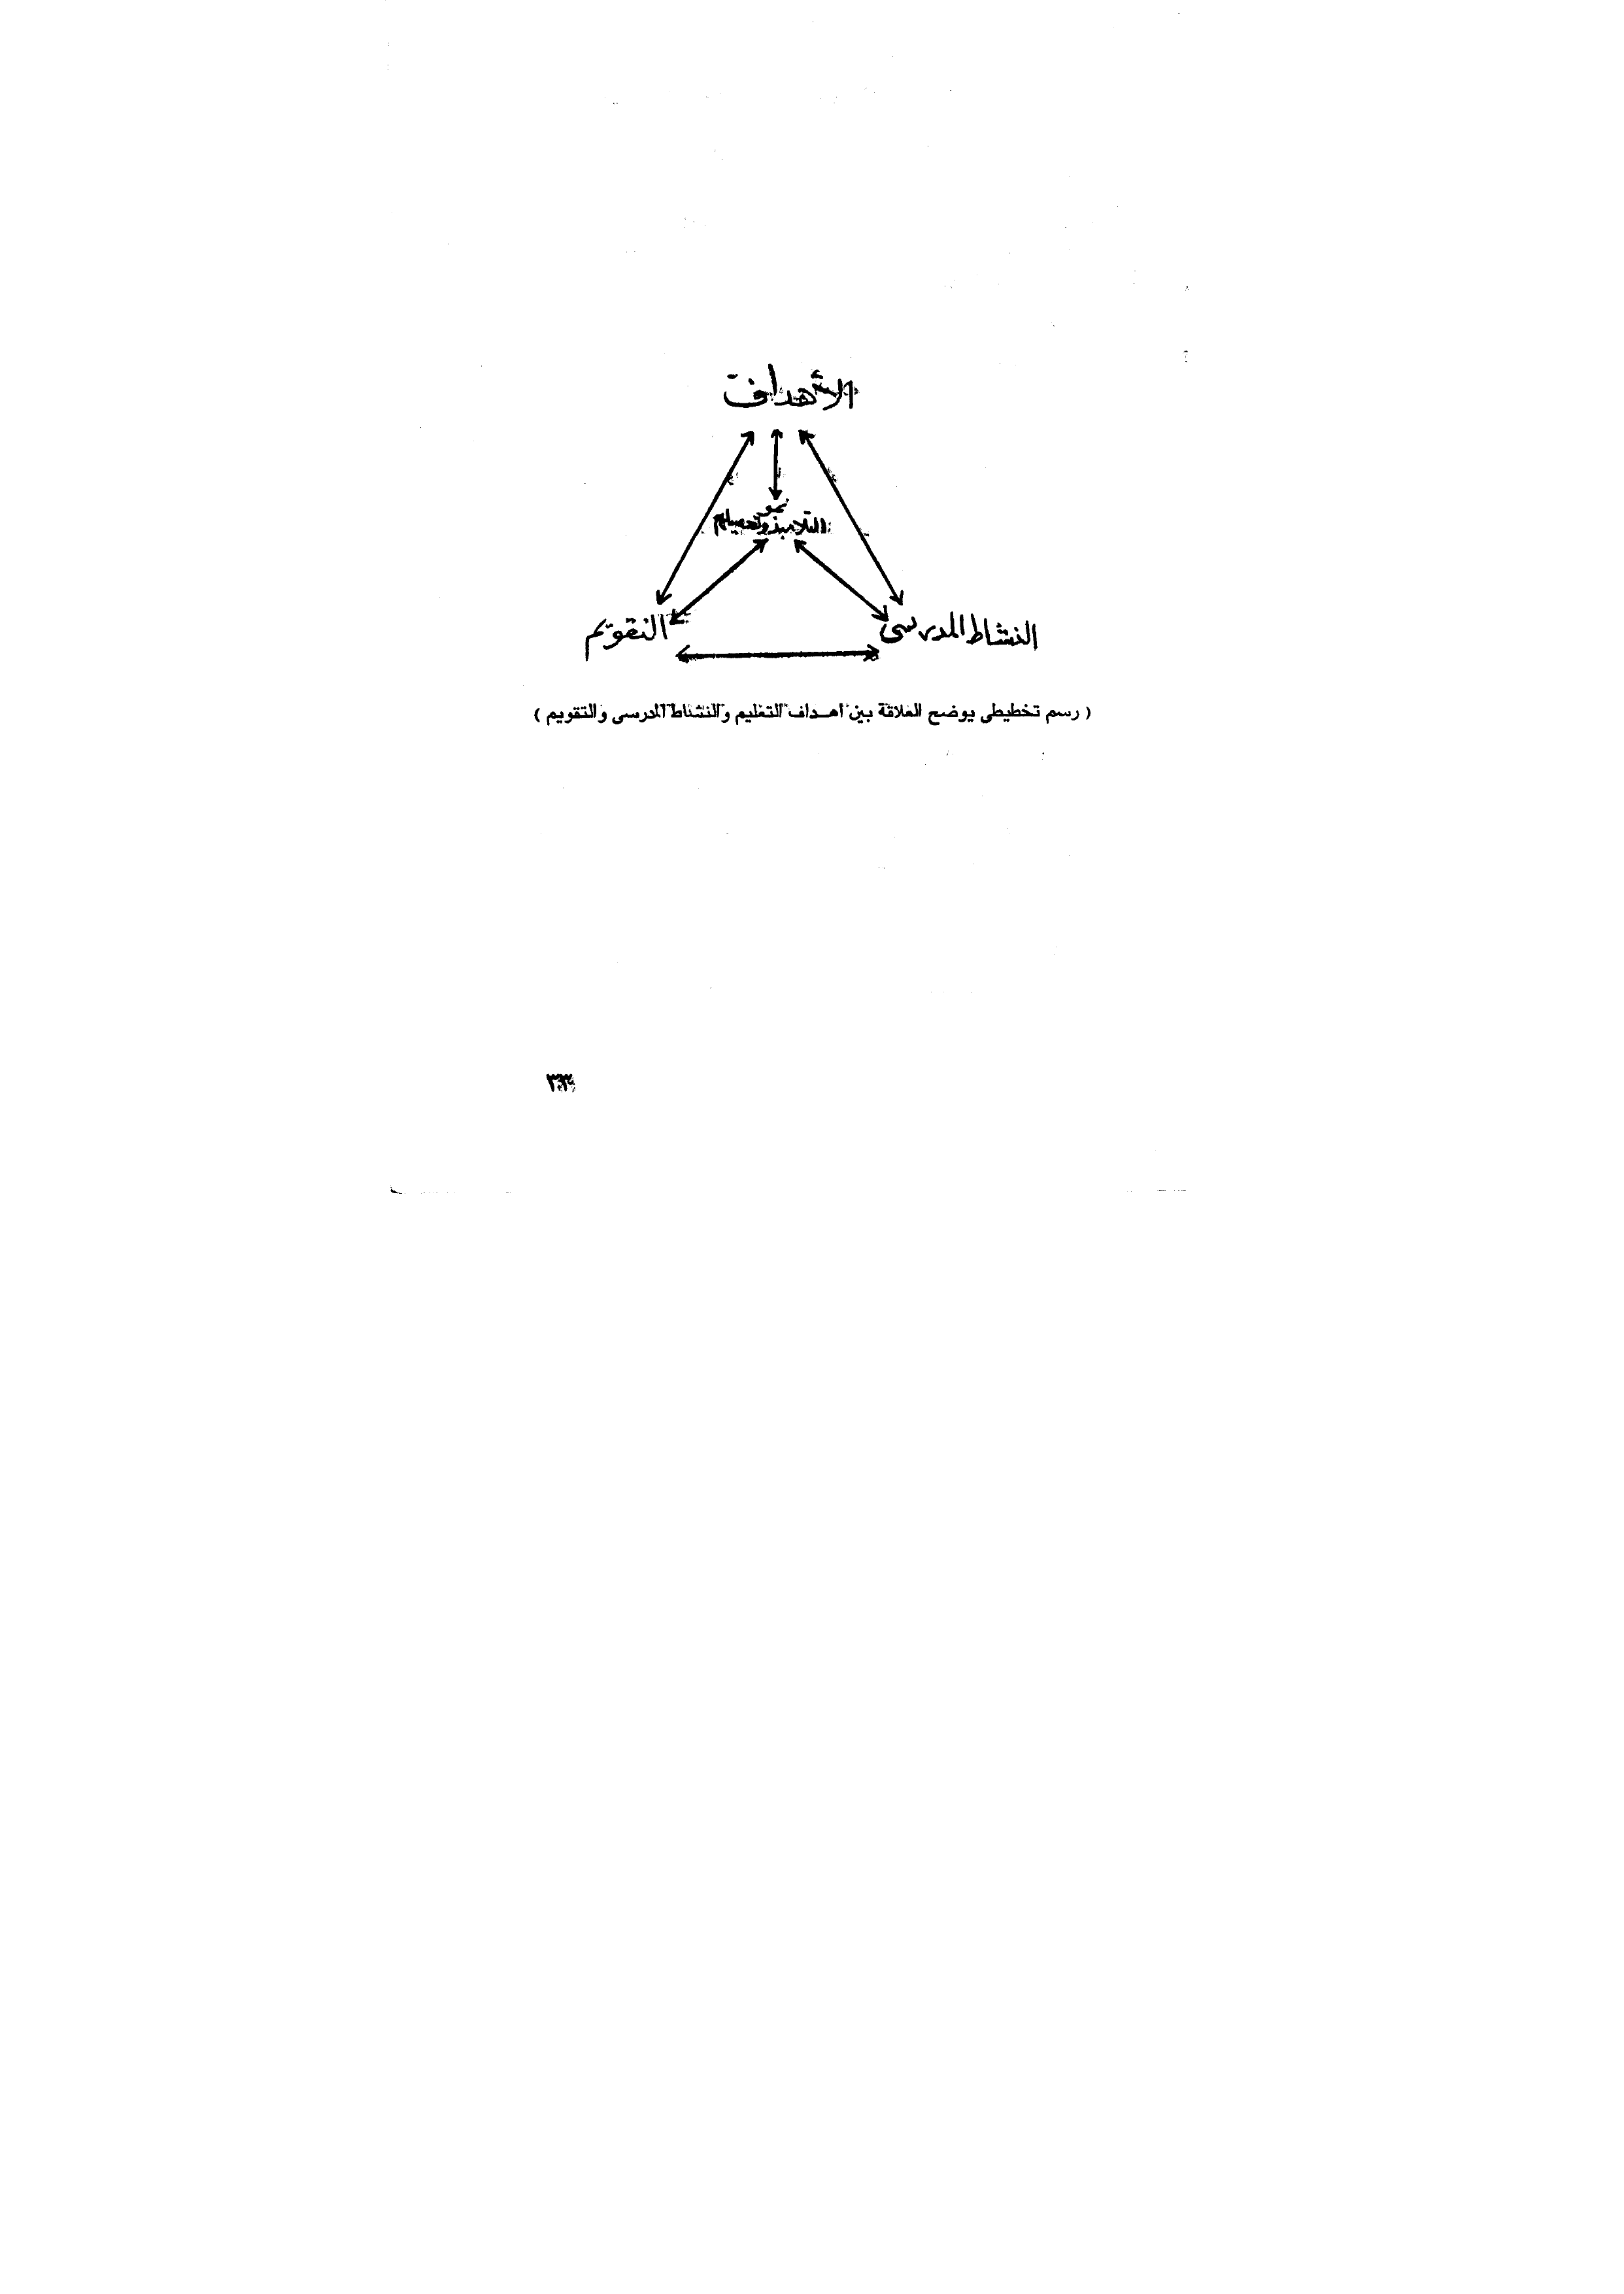 الأهداف
نمو
التلاميذ وتحصيلهم
النشاط المدرسى
التقويم
( رسم تخطيطى يوضح العلاقة بين أهداف التعليم والنشاط المدرسى والتقويم )